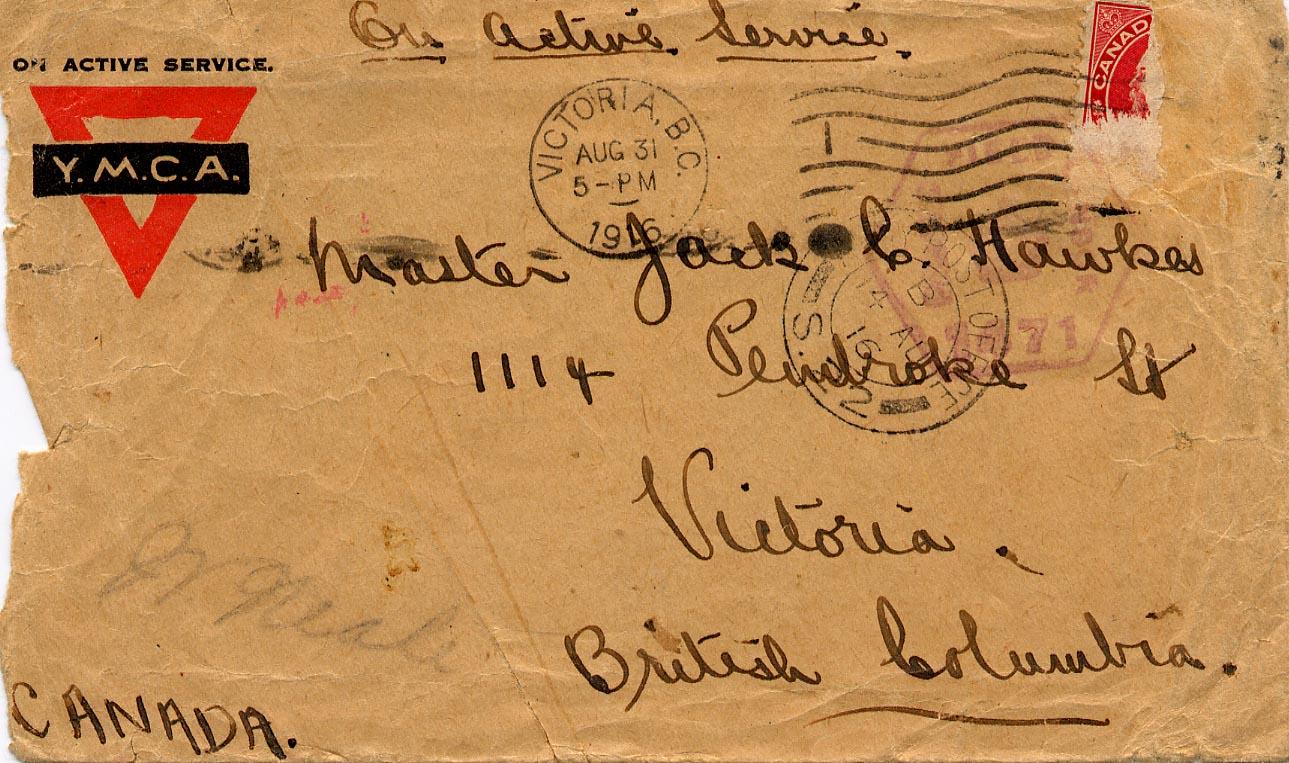 On Active Service.
ON ACTIVE SERVICE.
Y.M.C.A.
CANAD
VICTORIA, B.C.
AUG 31
5-PM
1916
Master Jack C. Hawkes
POST OFFICE
B
14 AU
16
S. 2
71
1114 Pendroke St
Victoria.
British Columbia.
CANADA.